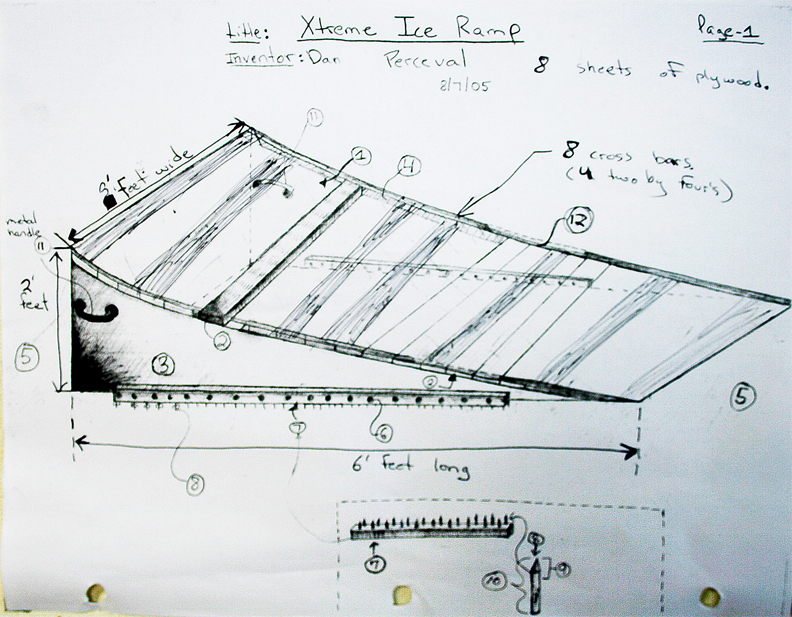 Title: Xtreme Ice Ramp
Page-1
Inventor: Dan Perceval
8 sheets of plywood.
2/7/05
8' feet wide
11
1
4
8 cross bars
(4 two by four's)
12
metal
handle
11
2'
feet
2
5
3
2
5
7
6
6' feet long
8
7
8
9
10